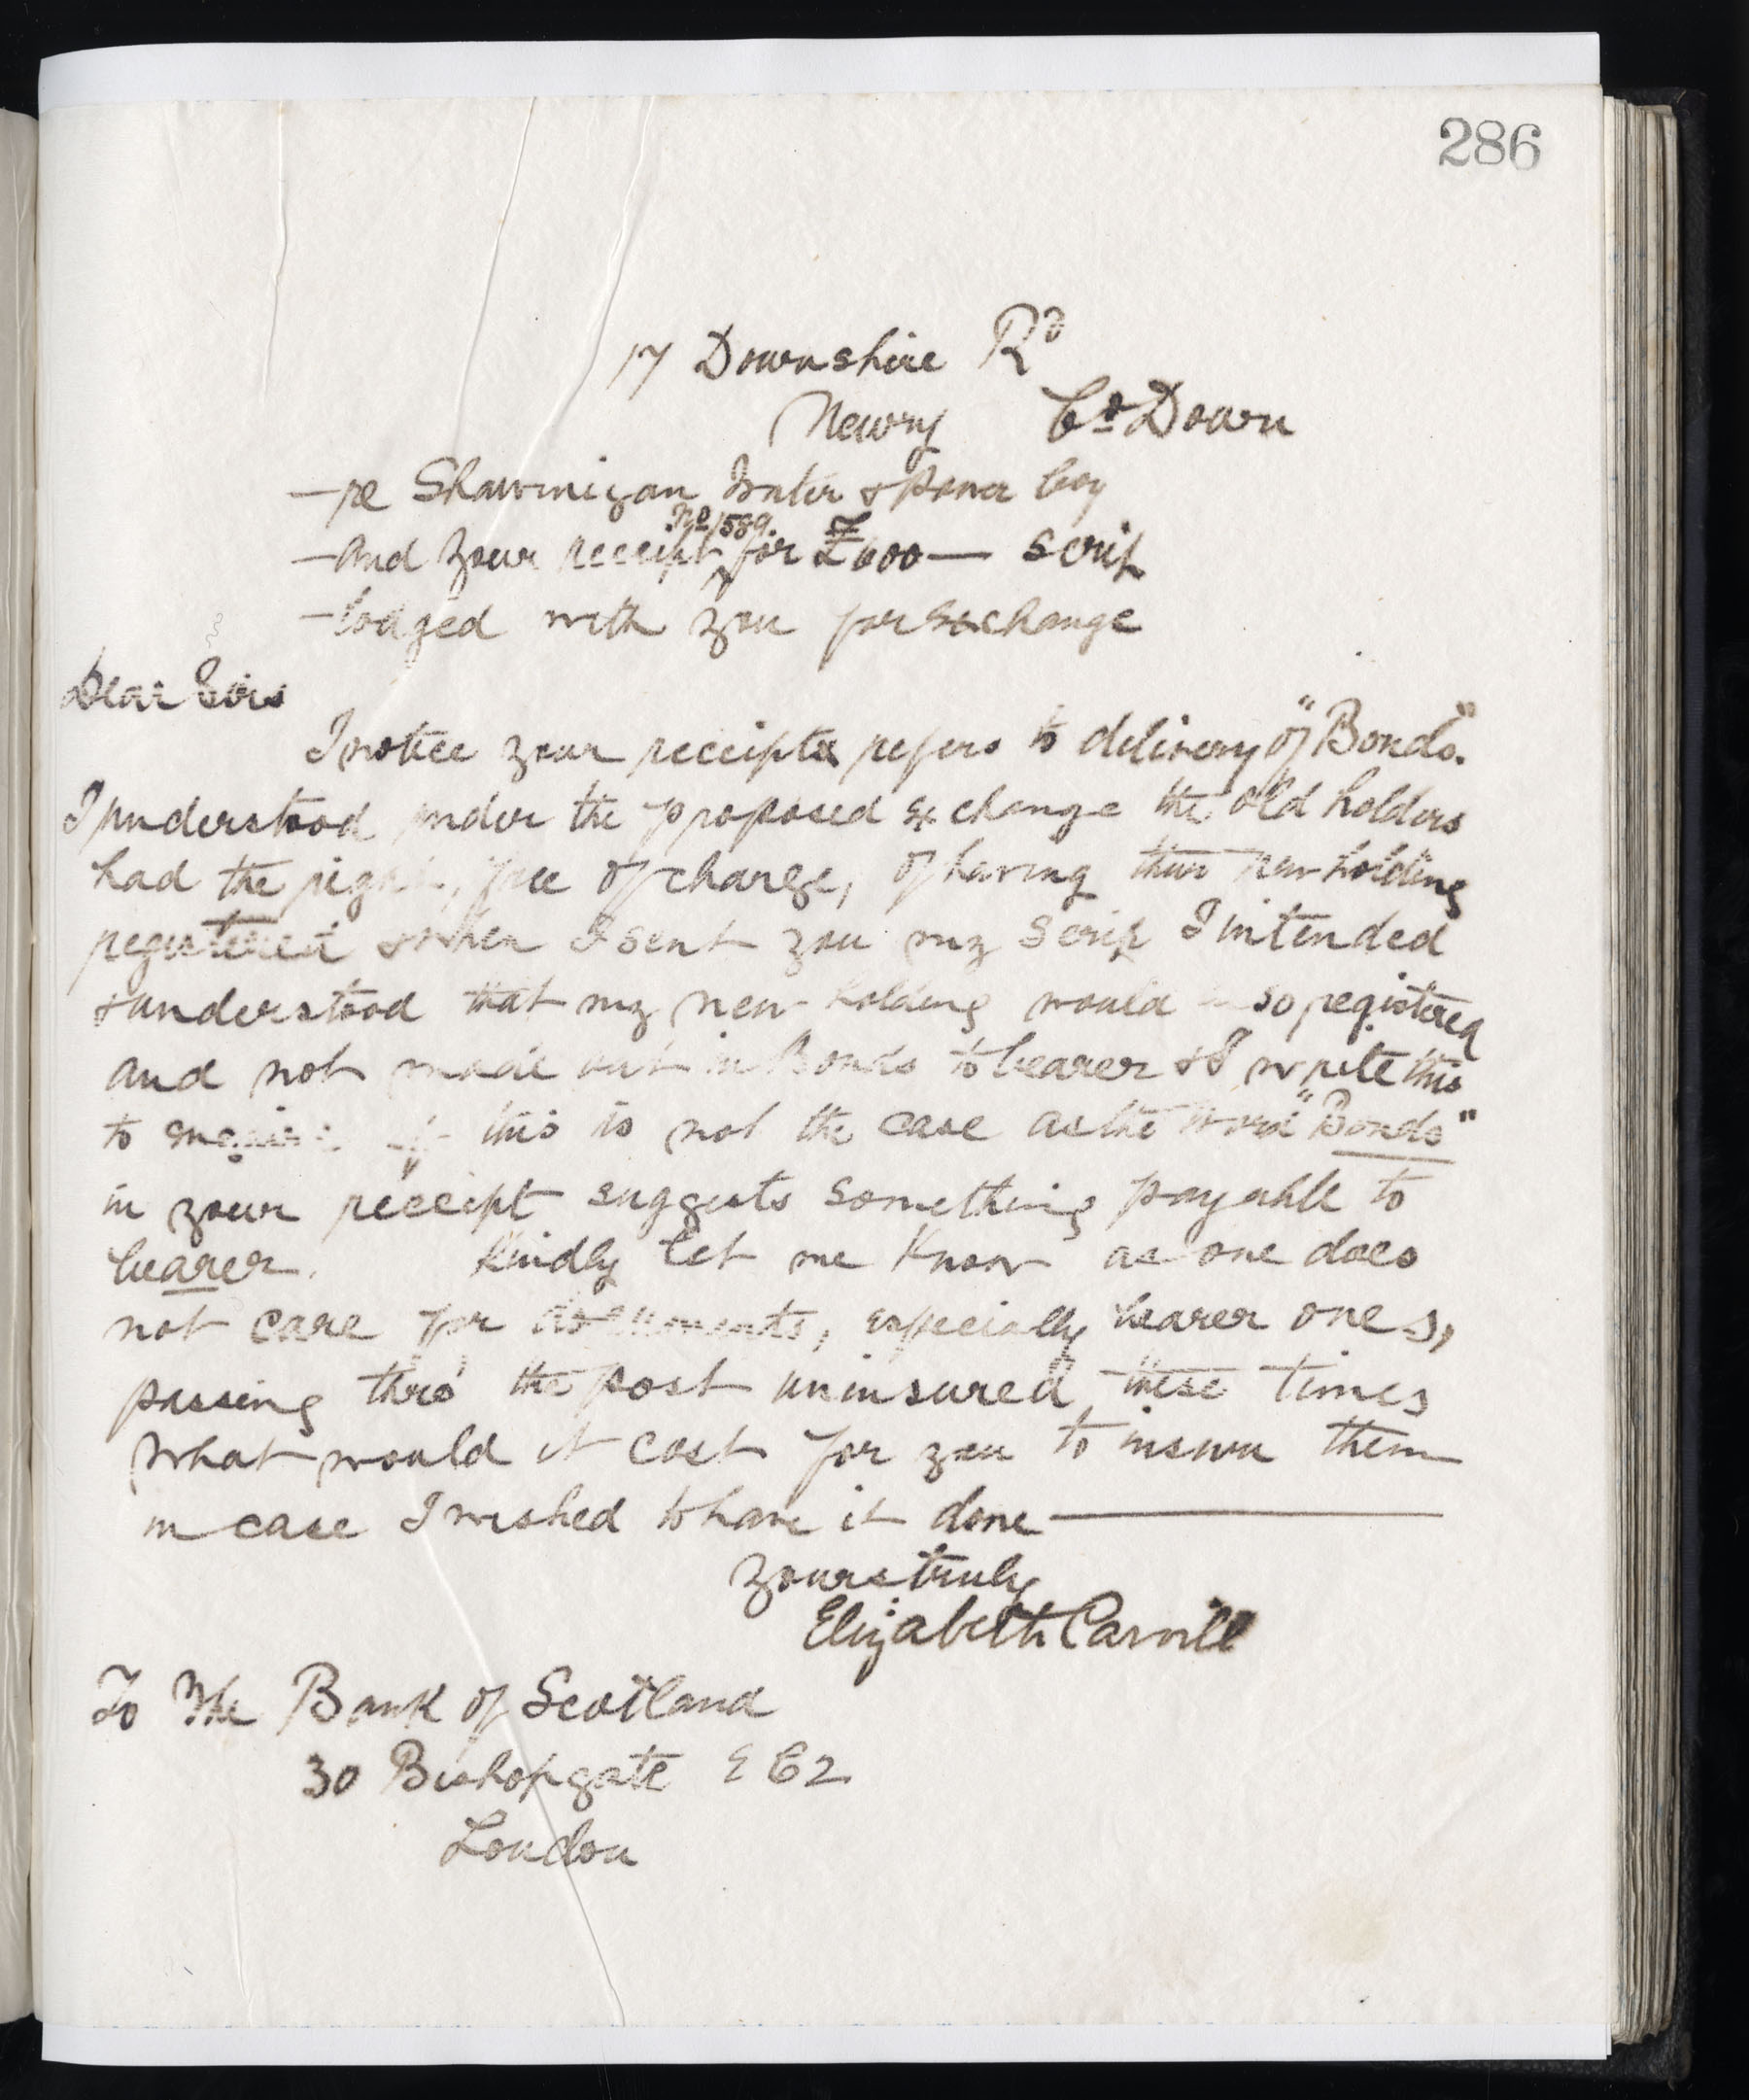 286
17 Downshire Rd
Newry Co Down
—re Shawinigan Water & Power Coy
No 1589
—and your receipt for £600— scrip
—lodged with you for Exchange
Dear Sirs
I notice your receipt refers to delivery of "Bonds".
I understood under the proposed exchange the old holders
had the right, free of charge, of having their new holding
registered & when I sent you my scrip I intended
& understood that my new holding would be so registered
and not made out in Bonds to bearer & I write this
to enquire if this is not the case as the word "Bonds"
in your receipt suggests something payable to
bearer. Kindly let me know as one does
not care for documents, especially bearer ones,
passing thro' the post uninsured these times
What would it cost for you to insure them
in case I wished to have it done —
Yours truly
Elizabeth Carvill
To The Bank of Scotland
30 Bishopgate E C 2
London